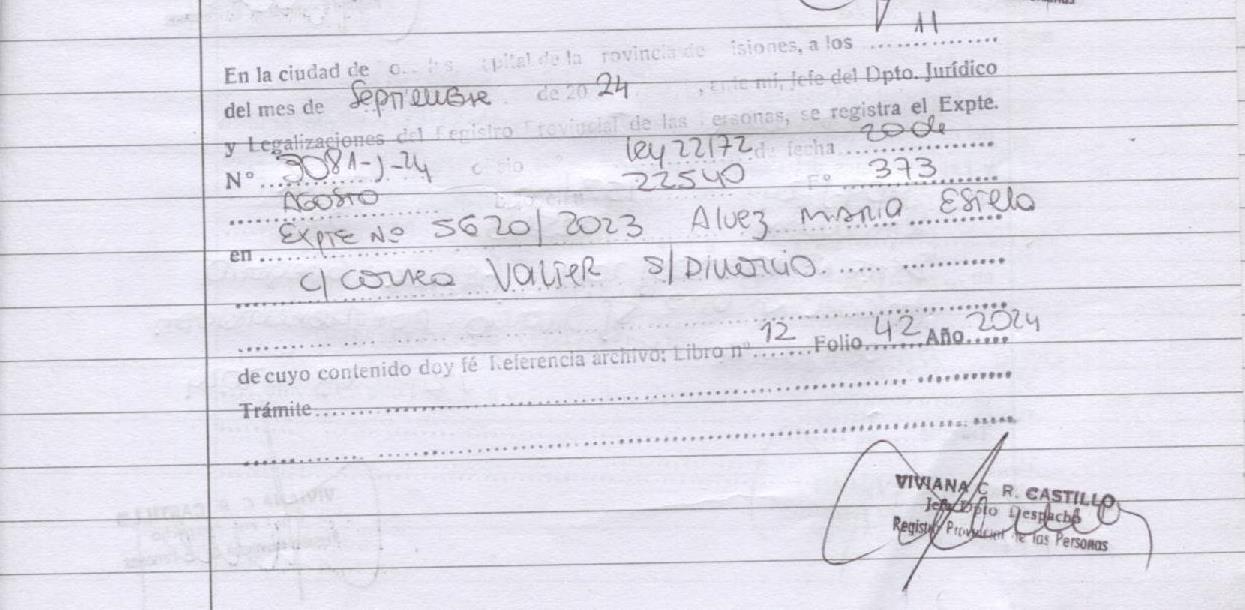 11
En la ciudad de pital de la rovincia de isiones, a los
del mes de Septiembre de 20 24, ante mi, Jefe del Dpto. Jurídico
y Legalizaciones del Registro Provincial de las Personas, se registra el Expte.
Nº 3081-J-24 ley 22172 de fecha 20 de
AGOSTO 22540 Fº 373
en EXPTE Nº 5620/2023 Alvez MARIA Estela
c/ CORREA VALTER S/ DIVORCIO
de cuyo contenido doy fé Referencia archivo: Libro nº 12 Folio 42 Año 2024
Trámite
VIVIANA C. R. CASTILLO
Jefe Dpto Despacho
Registro Provincial de las Personas